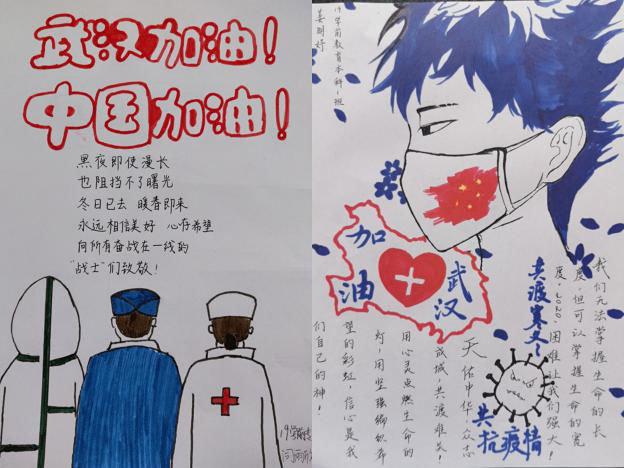 武汉加油！
中国加油！
黑夜即使漫长
也阻挡不了曙光
冬日已去 暖春即来
永远相信美好 心存希望
向所有奋战在一线的
"战士"们致敬！
19学前教育本科1班
加油
武汉
共渡寒冬
我们无法掌握生命的长
度，但可以掌握生命的宽
度，2020，困难让我们强大！
天佑中华，众志
成城，共渡难关！
用心灵点燃生命的
灯，用坚强编织希
望的彩虹，信心是我
们自己的神！
共
抗疫情